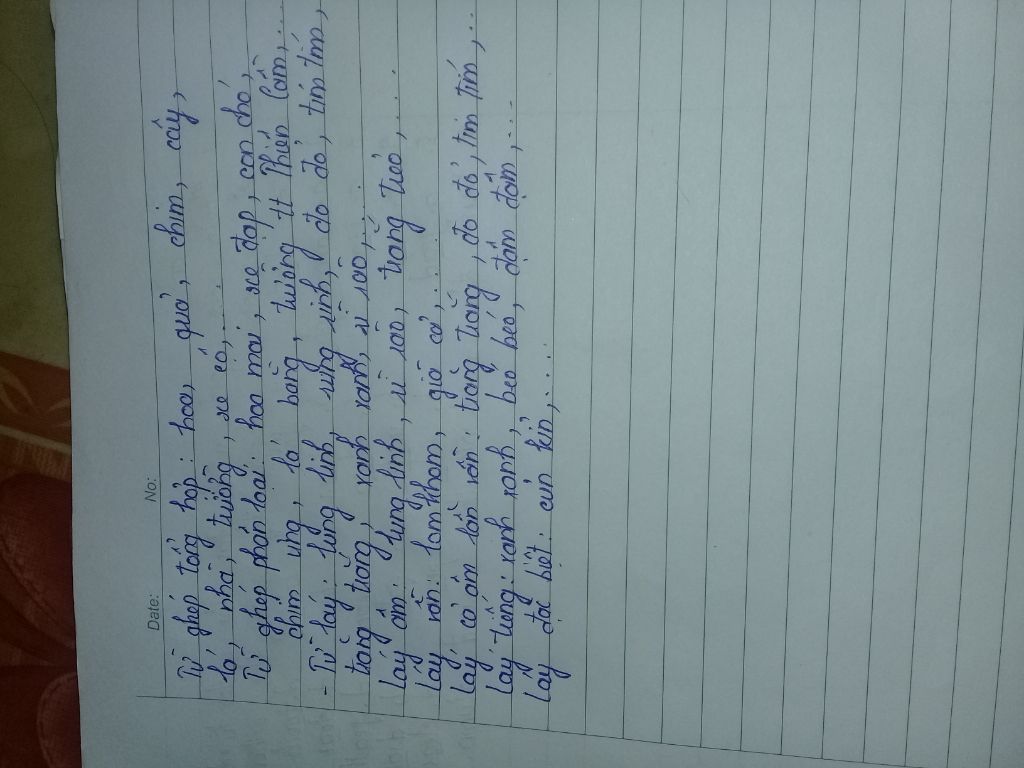 Date: No:
Từ ghép tổng hợp: hoa, quả, chim, cây,
lá, nhà, tường, xe cộ,.....
Từ ghép phân loại: hoa mai, xe đạp, con chó,
chim ưng, lá bàng, tường tt Thiên Cầm,...
- Từ láy: lung linh, rưng rinh, đo đỏ, tim tím,
trăng trắng, xanh xanh, rì rào,....
Láy âm: lung linh, rì rào, trong trẻo,....
Láy vần: lom khom, già cả,...
Láy cả âm lẫn vần: trăng trắng, đo đỏ, tim tím,...
Láy tiếng: xanh xanh, beo béo, đậm đậm,...
Láy đặc biệt: cũn kĩn,.....